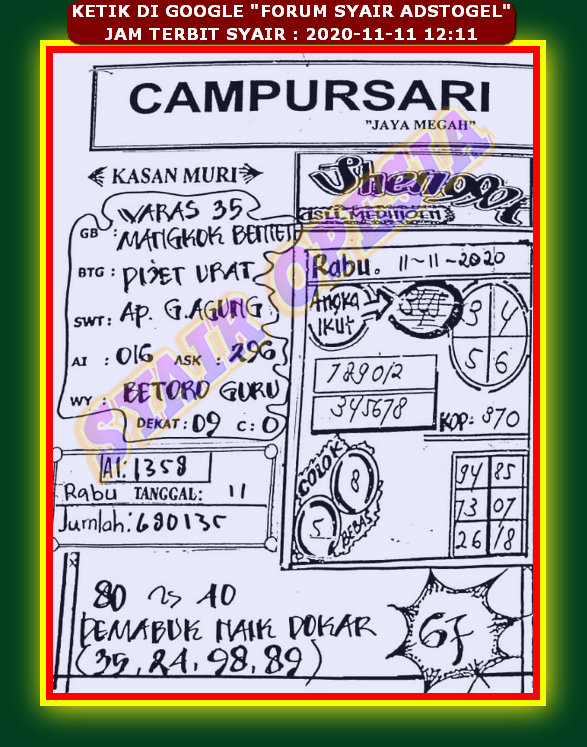 KETIK DI GOOGLE "FORUM SYAIR ADSTOGEL"
JAM TERBIT SYAIR : 2020-11-11 12:11
CAMPURSARI
"JAYA MEGAH"
KASAN MURI
WARAS 35
GB : MANGKOK
BTG : PIJET URAT
SWT: Ap. G.AGUNG
AI : 016 ASK : 296
WY : BETORO GURU
DEKAT: 09 C: 0
AI: 1358
Rabu TANGGAL: 11
Jumlah: 680135
Rabu. 11-11-2020
Angka
IKUT
3 4
5 6
789012
345678
KOP: 870
COLOK
8
5
BEBAS
94 85
73 07
26 18
80 40
PEMABUK NAIK DOKAR
(35, 24, 98, 89)
67
SYAIR OPESIA